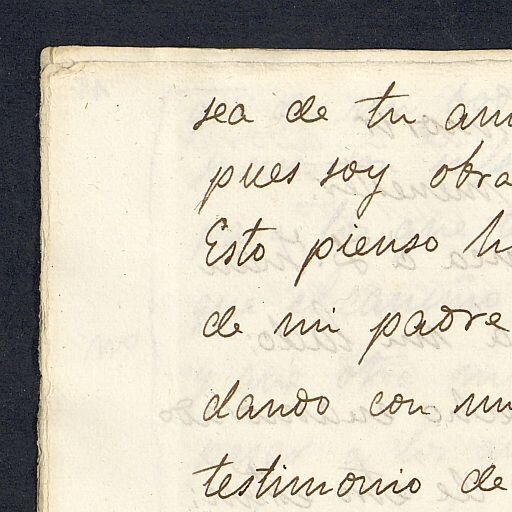 sea de tu am
pues soy obra
Esto pienso h
de mi padre
dando con mi
testimonio de